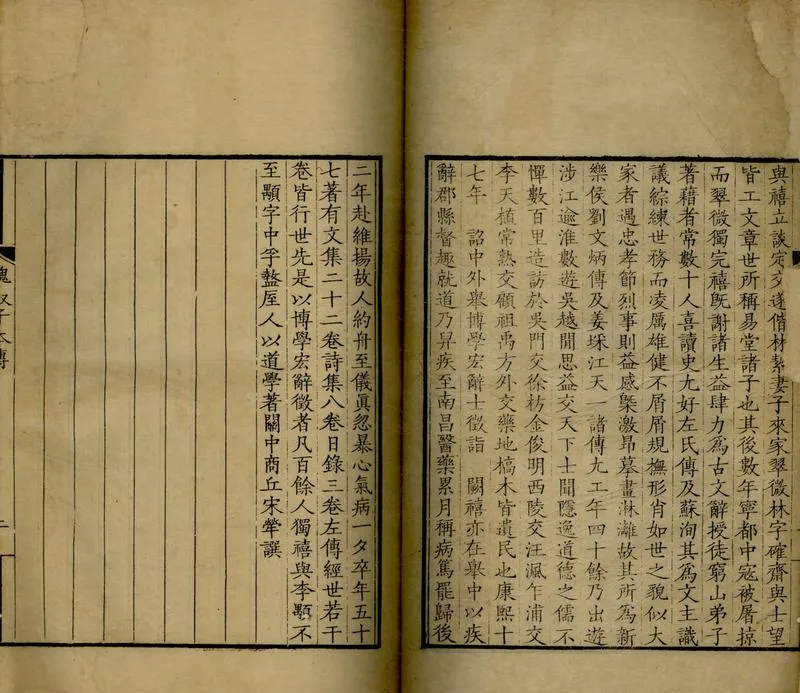 與禧立談定交遂偕材絜妻子來家翠微林字確齋與士望
皆工文章世所稱易堂諸子也其後數年寧都中寇被屠掠
而翠微獨完禧旣謝諸生益肆力為古文辭授徒窮山弟子
著藉者常數十人喜讀史尤好左氏傳及蘇洵其為文主識
議綜練世務而凌厲雄健不屑屑規橅形肖如世之貌似大
家者遇忠孝節烈事則益感槩激昂摹畫淋漓故其所為新
樂侯劉文炳傳及姜埰江天一諸傳尤工年四十餘乃出遊
涉江逾淮數遊吳越間思益交天下士聞隱逸道德之儒不
憚數百里造訪於吳門交徐枋金俊明西陵交汪渢乍浦交
李天植常熟交顧祖禹方外交藥地槁木皆遺民也康熙十
七年 詔中外舉博學宏辭士徵詣 闕禧亦在舉中以疾
辭郡縣督趣就道乃舁疾至南昌醫藥累月稱病篤罷歸後
二年赴維揚故人約舟至儀眞忽暴心氣病一夕卒年五十
七著有文集二十二卷詩集八卷日錄三卷左傳經世若干
卷皆行世先是以博學宏辭徵者凡百餘人獨禧與李顒不
至顒字中孚盩厔人以道學著關中商丘宋犖譔
魏叔子本傳
二